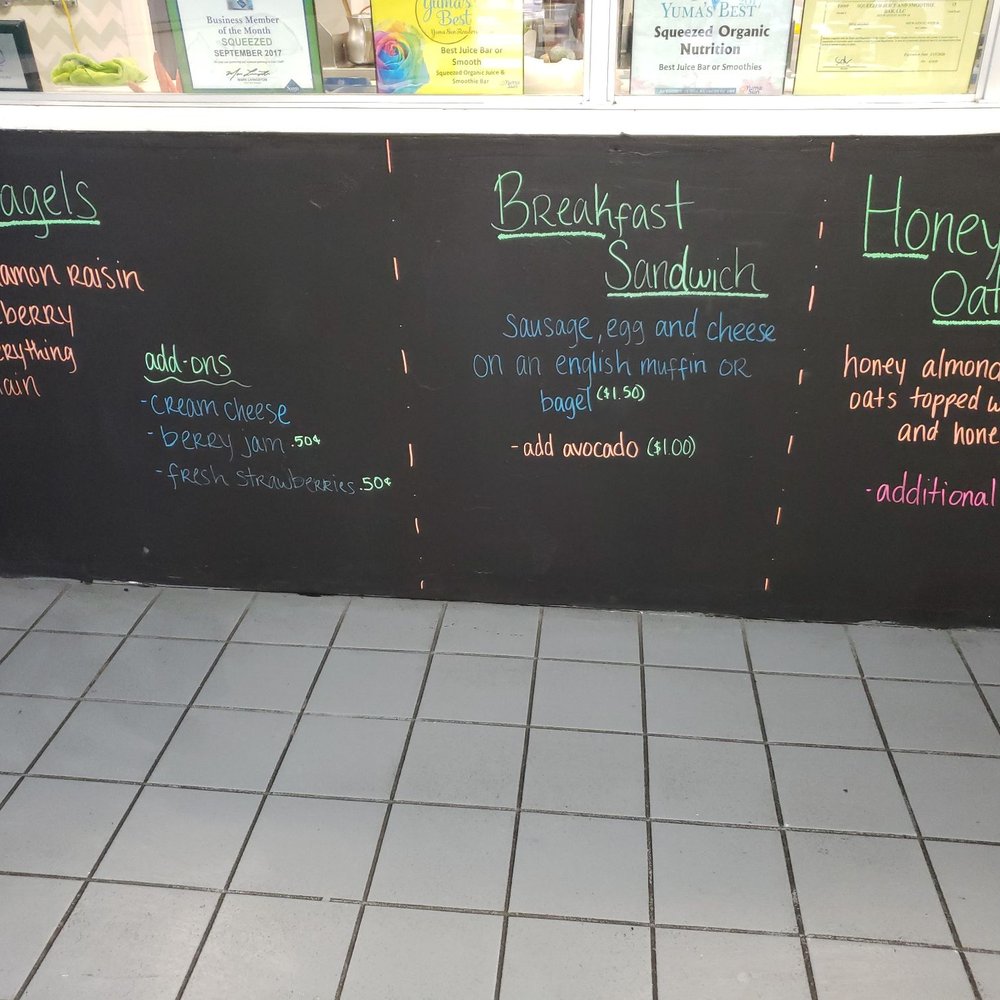 Business Member
of the Month
SQUEEZED
SEPTEMBER 2017
Yuma's
Best
Yuma Sun Readers
Best Juice Bar or
Smooth
Squeezed Organic Juice &
Smoothie Bar
YUMA'S BEST
Squeezed Organic
Nutrition
Best Juice Bar or Smoothies
agels
amon Raisin
berry
erything
lain
add-ons
- cream cheese
- berry jam .50¢
- fresh strawberries .50¢
Breakfast
Sandwich
sausage, egg and cheese
on an english muffin OR
bagel ($1.50)
- add avocado ($1.00)
Honey
Oat
honey almond
oats topped w
and hone
- additional